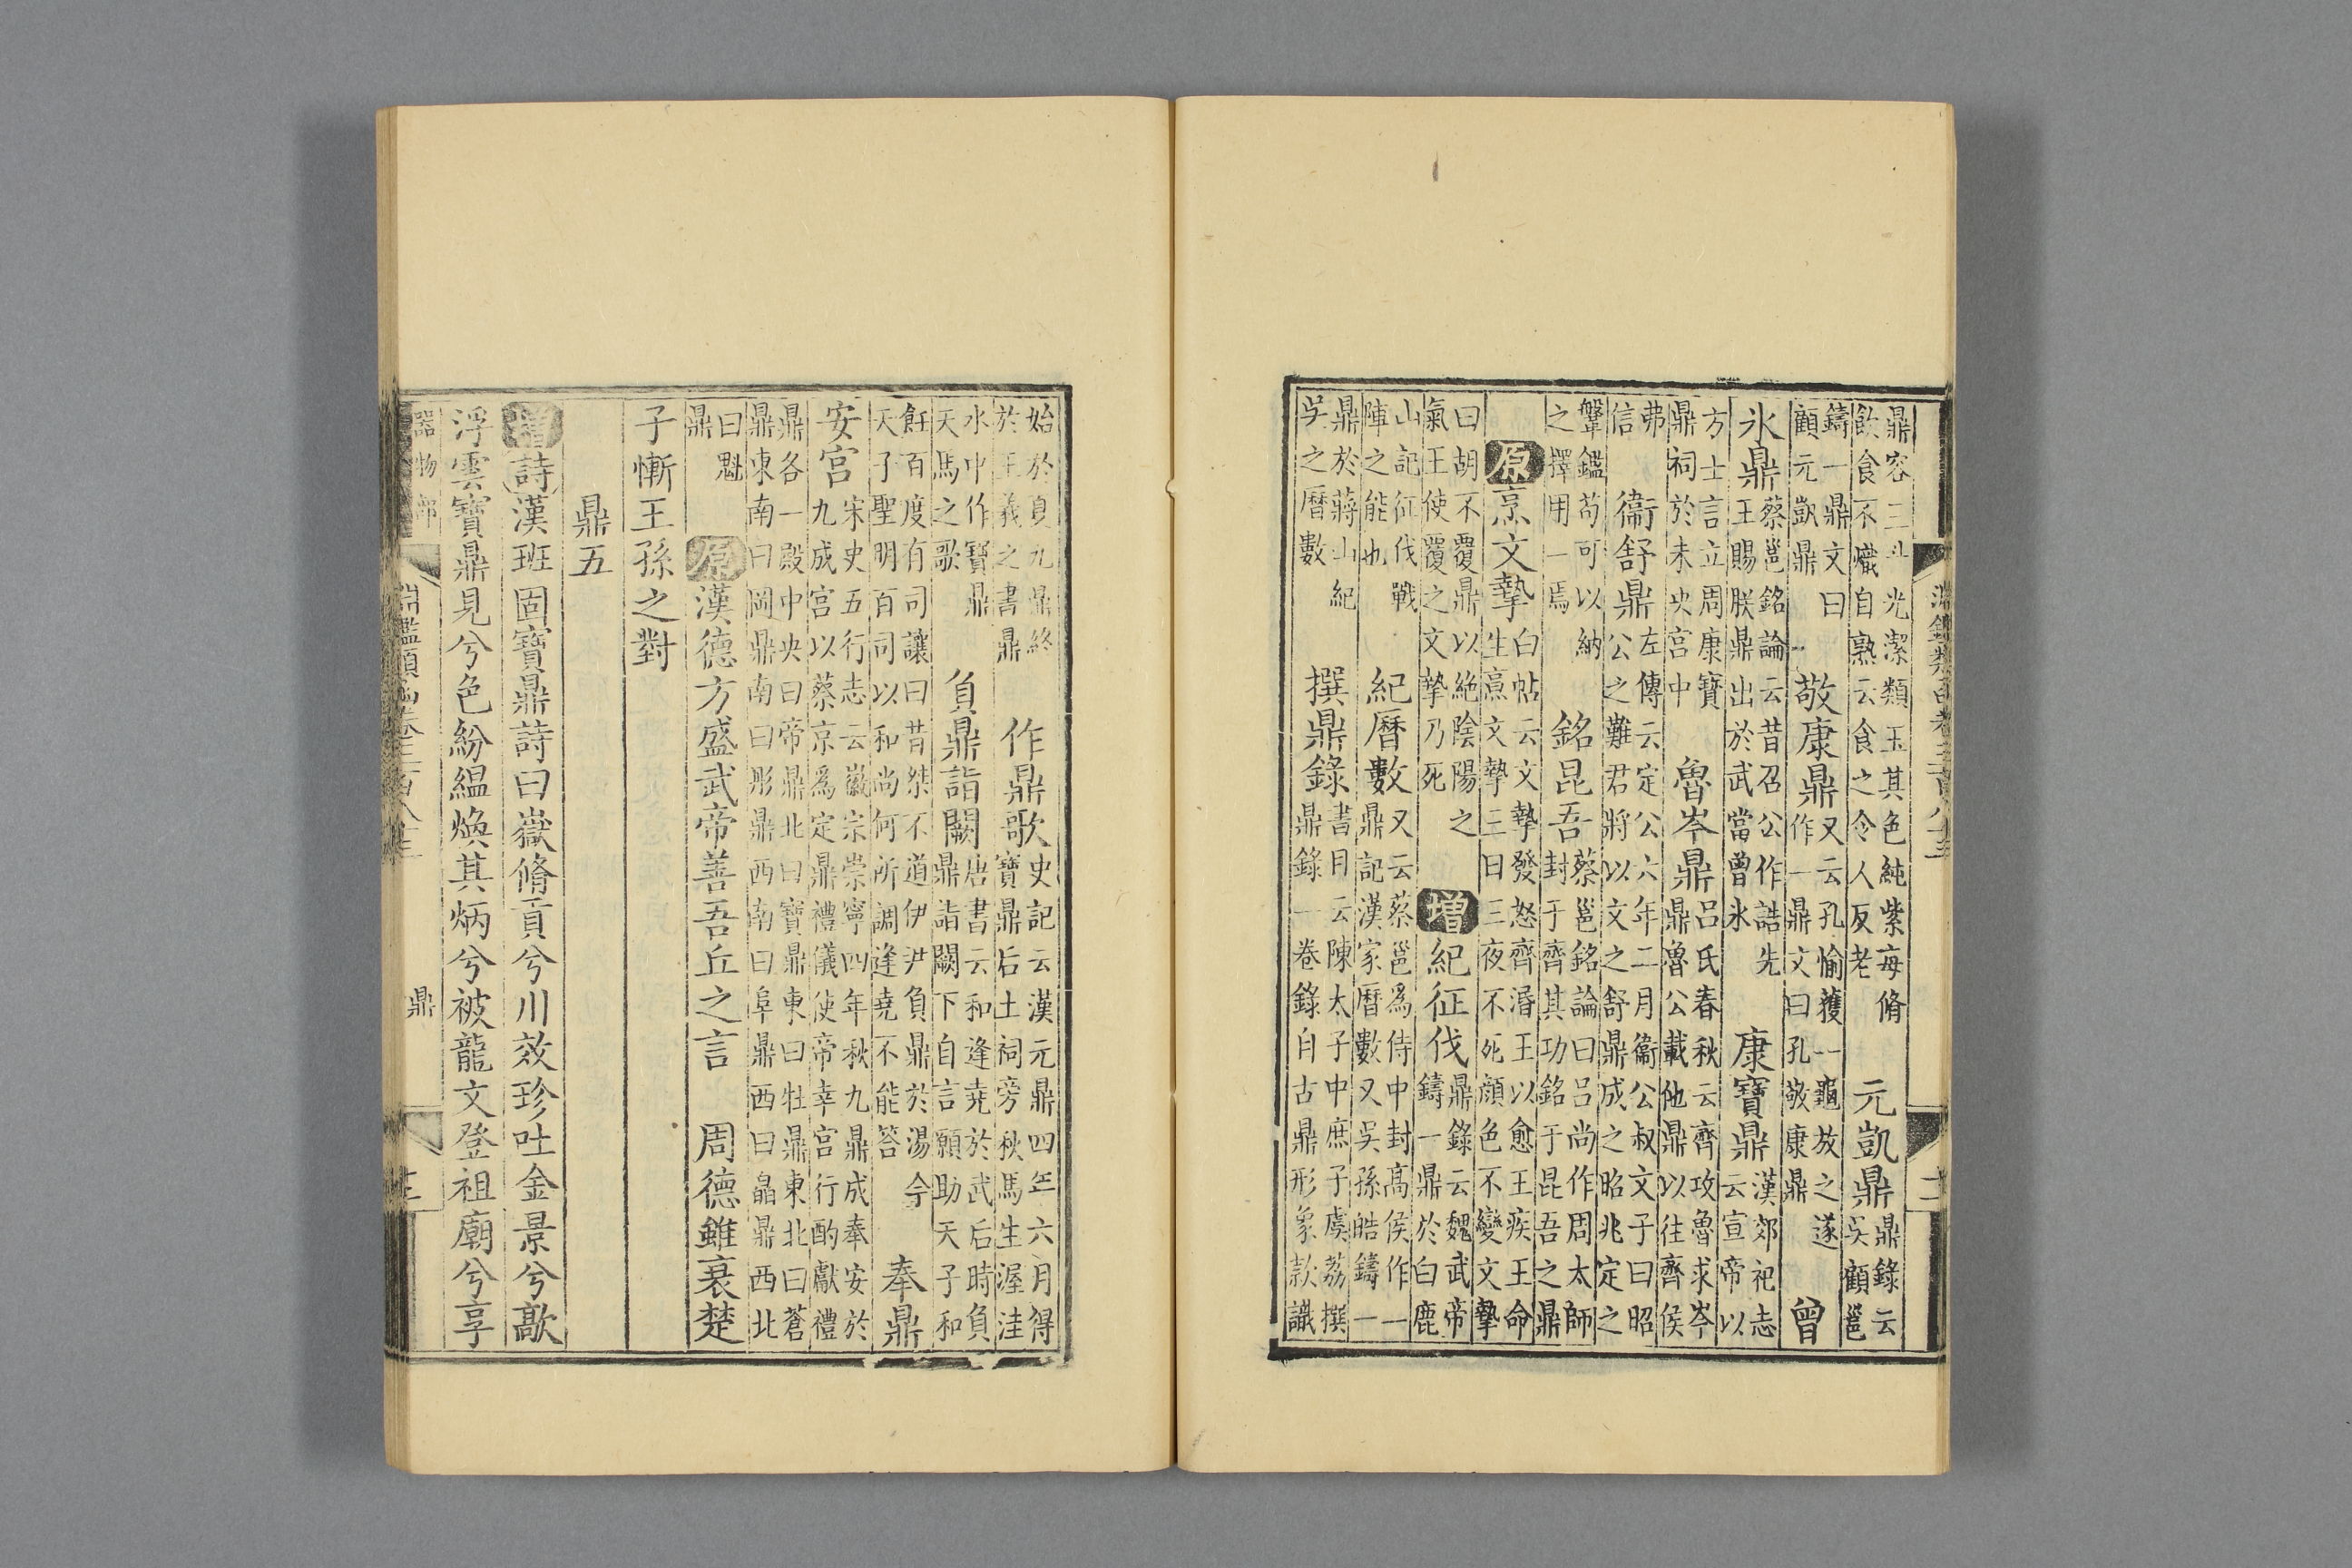 鼎容二斗光潔類玉其色純紫每脩飲食不熾自熟云食之令人反老 元凱鼎鼎錄云吳顧邕
鑄一鼎文曰顧元凱鼎 敬康鼎又云孔愉獲一龜放之遂作一鼎文曰孔敬康鼎 曾
氷鼎蔡邕銘論云昔召公作誥先王賜朕鼎出於武當曾氷 康寶鼎漢郊祀志云宣帝以
方士言立周康寶鼎祠於未央宮中 魯岑鼎呂氏春秋云齊攻魯求岑鼎魯公載他鼎以往齊侯
弗信 衞舒鼎左傳云定公六年二月衞公叔文子曰昭公之難君將以文之舒鼎成之昭兆定之
鞶鑑苟可以納之擇用一焉 銘昆吾蔡邕銘論曰呂尚作周太師封于齊其功銘于昆吾之鼎
原烹文摯白帖云文摯發怒齊湣王以愈王疾王命生烹文摯三日三夜不死顔色不變文摯
曰胡不覆鼎以絶陰陽之氣王使覆之文摯乃死 增紀征伐鼎錄云魏武帝鑄一鼎於白鹿
山記征伐戰陣之能也 紀曆數又云蔡邕爲侍中封高侯作一鼎記漢家曆數又吳孫皓鑄一
鼎於蔣山紀吳之曆數 撰鼎錄書目云陳太子中庶子虞荔撰鼎錄一卷錄自古鼎形象款識
始於夏九鼎終於王羲之書鼎 作鼎歌史記云漢元鼎四年六月得寶鼎后土祠旁秋馬生渥洼
水中作寶鼎天馬之歌 負鼎詣闕唐書云和逢堯於武后時負鼎詣闕下自言願助天子和
飪百度有司讓曰昔桀不道伊尹負鼎於湯今天子聖明百司以和尚何所調逢堯不能答 奉鼎
安宮宋史五行志云徽宗崇寧四年秋九鼎成奉安於九成宮以蔡京爲定鼎禮儀使帝幸宮行酌獻禮
鼎各一殿中央曰帝鼎北曰寶鼎東曰牡鼎東北曰蒼鼎東南曰岡鼎南曰彤鼎西南曰阜鼎西曰皛鼎西北
曰魁鼎 原漢德方盛武帝善吾丘之言 周德雖衰楚
子慚王孫之對
鼎五
增詩漢班固寶鼎詩曰嶽脩貢兮川效珍吐金景兮歊
浮雲寶鼎見兮色紛緼煥其炳兮被龍文登祖廟兮享
器物部 淵鑑類函卷三百八十三 鼎